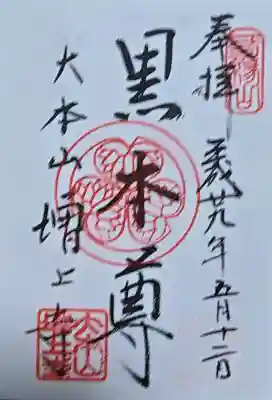 奉拝 平成廿九年五月十二日
黒本尊
大本山 増上寺